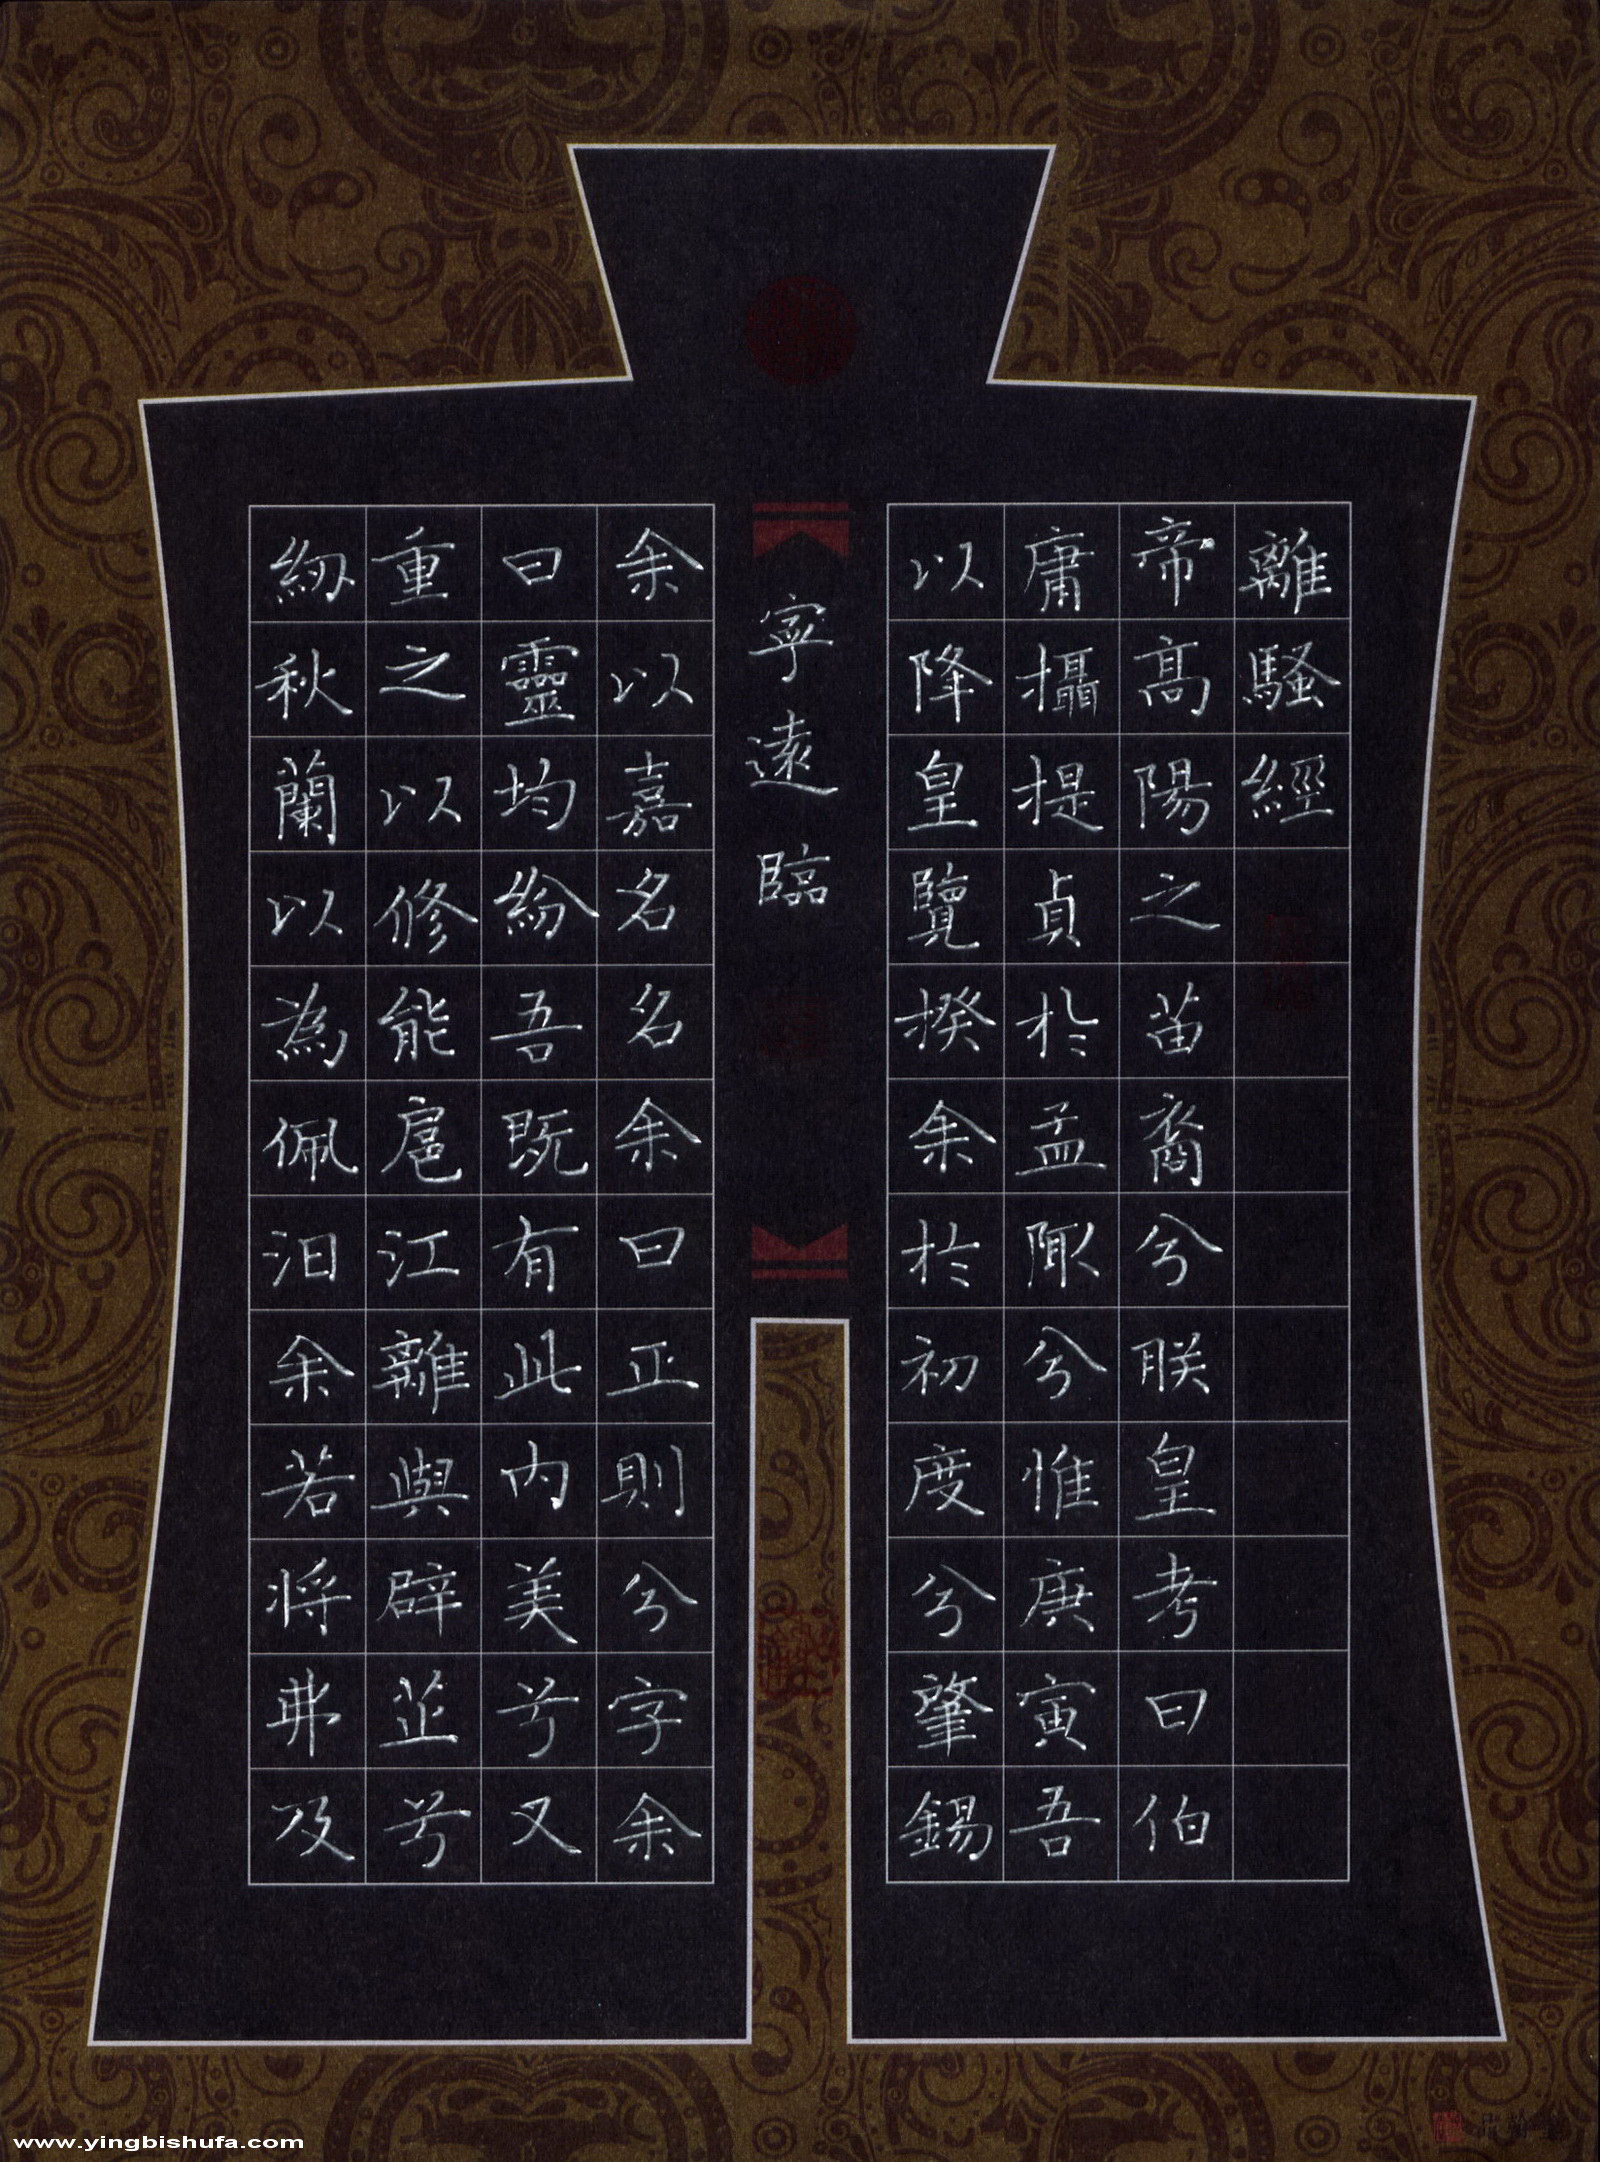 離騷經
帝髙陽之苗裔兮朕皇考曰伯
庸攝提貞於孟陬兮惟庚寅吾
以降皇覽揆余於初度兮肇錫
寧遠臨
余以嘉名名余曰正則兮字余
曰靈均紛吾既有此内美兮又
重之以修能扈江離與辟芷兮
紉秋蘭以為佩汩余若將弗及
www.yingbishufa.com